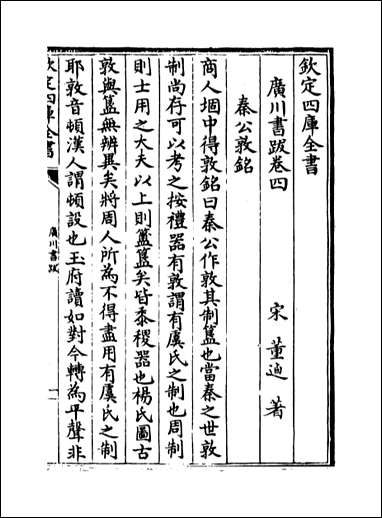 欽定四庫全書
廣川書跋卷四
宋 董逌 著
秦公敦銘
商人堌中得敦銘曰秦公作敦其制簋也當秦之世敦
制尚存可以考之按禮器有敦謂有虞氏之制也周制
則士用之大夫以上則簠簋矣皆黍稷器也楊氏圖古
敦與簋無辨異矣將周人所為不得盡用有虞氏之制
耶敦音頓漢人謂頓設也玉府讀如對今轉為平聲非
欽定四庫全書
廣川書跋
一